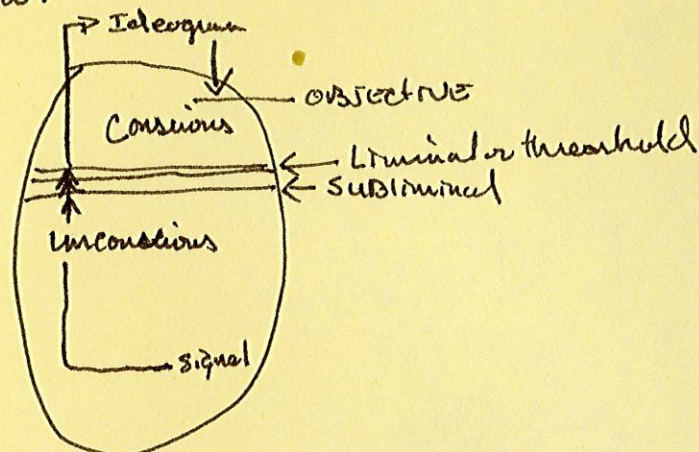 Ideogram
OBJECTIVE
Conscious
Liminal or threashold
Subliminal
Unconscious
signal